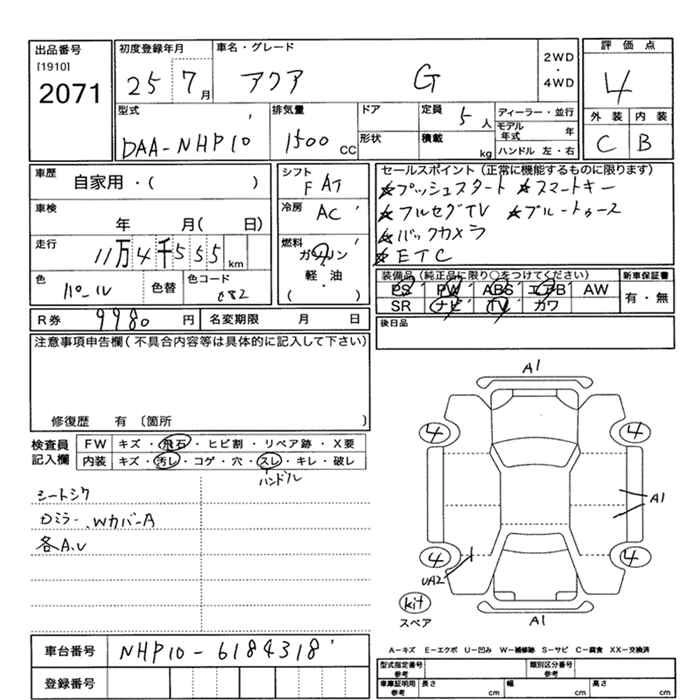 出品番号
[1910]
2071
初度登録年月
25 7月
車名・グレード
アクア G
2WD
・
4WD
評価点
4
外装 内装
C B
型式
DAA-NHP10
排気量
1500 cc
ドア
形状
定員 5人
積載 kg
ディーラー・並行
モデル年式 年
ハンドル 左・右
車歴 自家用・( )
車検 年 月( 日)
走行 11万4千555km
色 パール 色替 色コード 082
シフト F AT
冷房 AC
燃料 ガソリン
軽・油
( ・ )
セールスポイント(正常に機能するものに限ります)
☆プッシュスタート ☆スマートキー
☆フルセグTV ☆ブルートゥース
☆バックカメラ
☆ETC
装備品(純正品に限り○をつけてください)
PS PW ABS エアB AW
SR ナビ TV カワ
新車保証書
有・無
R券 9980円 名変期限 月 日
後日品
注意事項申告欄(不具合内容等は具体的に記入して下さい)
修復歴 有〔箇所 〕
検査員記入欄
FW キズ・飛石・ヒビ割・リペア跡・X要
内装 キズ・汚レ・コゲ・穴・スレ・キレ・破レ
ハンドル
シートシワ
ロミラー、WカバーA
各A.U
A1
4 4
A1
4 4
UA2
kit
スペア
A1
A-キズ E-エクボ U-凹み W-補修跡 S-サビ C-腐食 XX-交換済
車台番号 NHP10-6184318
登録番号
型式指定番号 参考
類別区分番号 参考
車庫証明用 参考 長さ cm 幅 cm 高さ cm